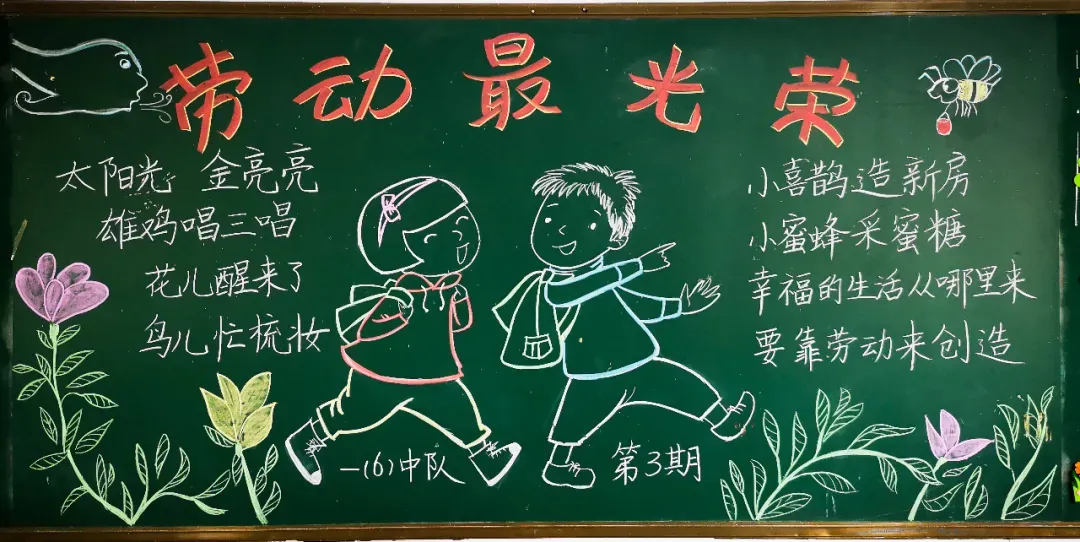 劳动最光荣
太阳光 金亮亮
雄鸡唱三唱
花儿醒来了
鸟儿忙梳妆
小喜鹊造新房
小蜜蜂采蜜糖
幸福的生活从哪里来
要靠劳动来创造
一(6)中队
第3期